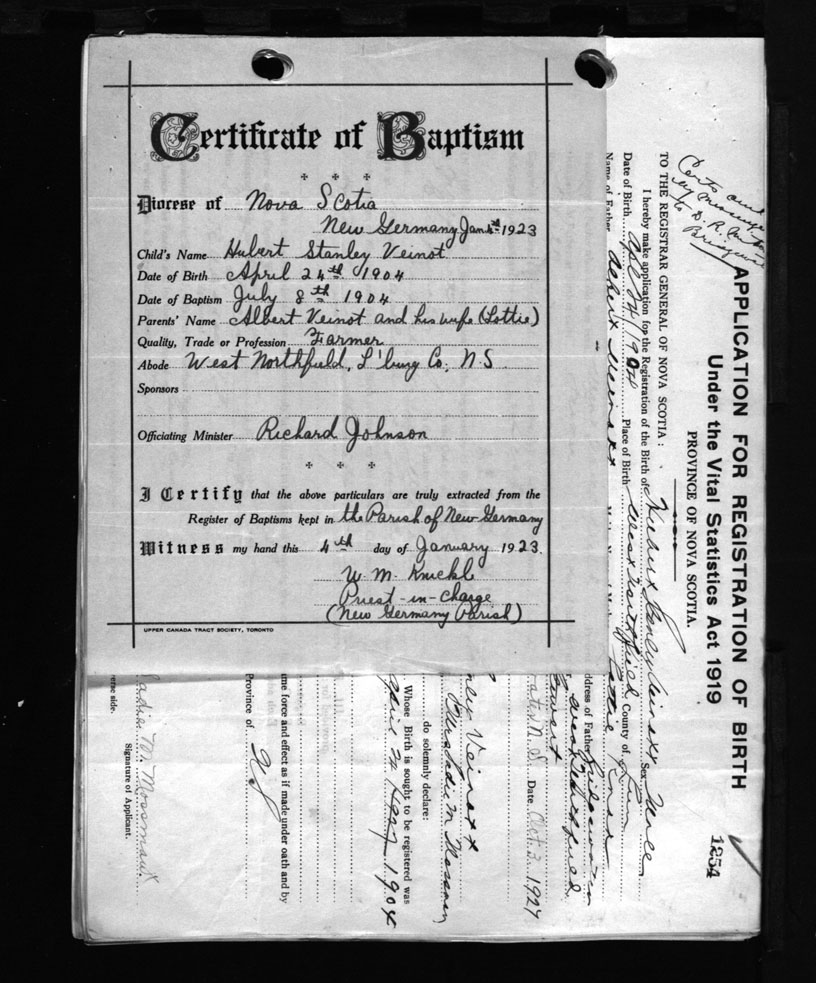 Certificate of Baptism
Diocese of Nova Scotia
New Germany Jan 4th 1923
Child's Name Hubert Stanley Veinot
Date of Birth April 24th 1904
Date of Baptism July 8th 1904
Parents' Name Albert Veinot and his wife (Lottie)
Quality, Trade or Profession Farmer
Abode West Northfield, L'burg Co. N S
Sponsors
Officiating Minister Richard Johnson
I Certify that the above particulars are truly extracted from the
Register of Baptisms kept in the Parish of New Germany
Witness my hand this 4th day of January 1923.
W. M. Knickle
Priest-in-charge
(New Germany Parish)
UPPER CANADA TRACT SOCIETY, TORONTO
1254
APPLICATION FOR REGISTRATION OF BIRTH
Under the Vital Statistics Act 1919
PROVINCE OF NOVA SCOTIA.
Certs and
to D. R.
TO THE REGISTRAR GENERAL OF NOVA SCOTIA:
I hereby make application for the Registration of the Birth of Hubert Stanley Veinot Sex Male
Date of Birth Apl 24/1904 Place of Birth West Northfield County of Lun
Name of Father Albert Veinot
Address of Father Bridgewater
West Northfield
N. S. Date Oct. 3 1927
Veinott
do solemnly declare:
Whose Birth is sought to be registered was
April 24 1904
me force and effect as if made under oath and by
Province of N S
Sadie W. Mossman
Signature of Applicant.
erse side.